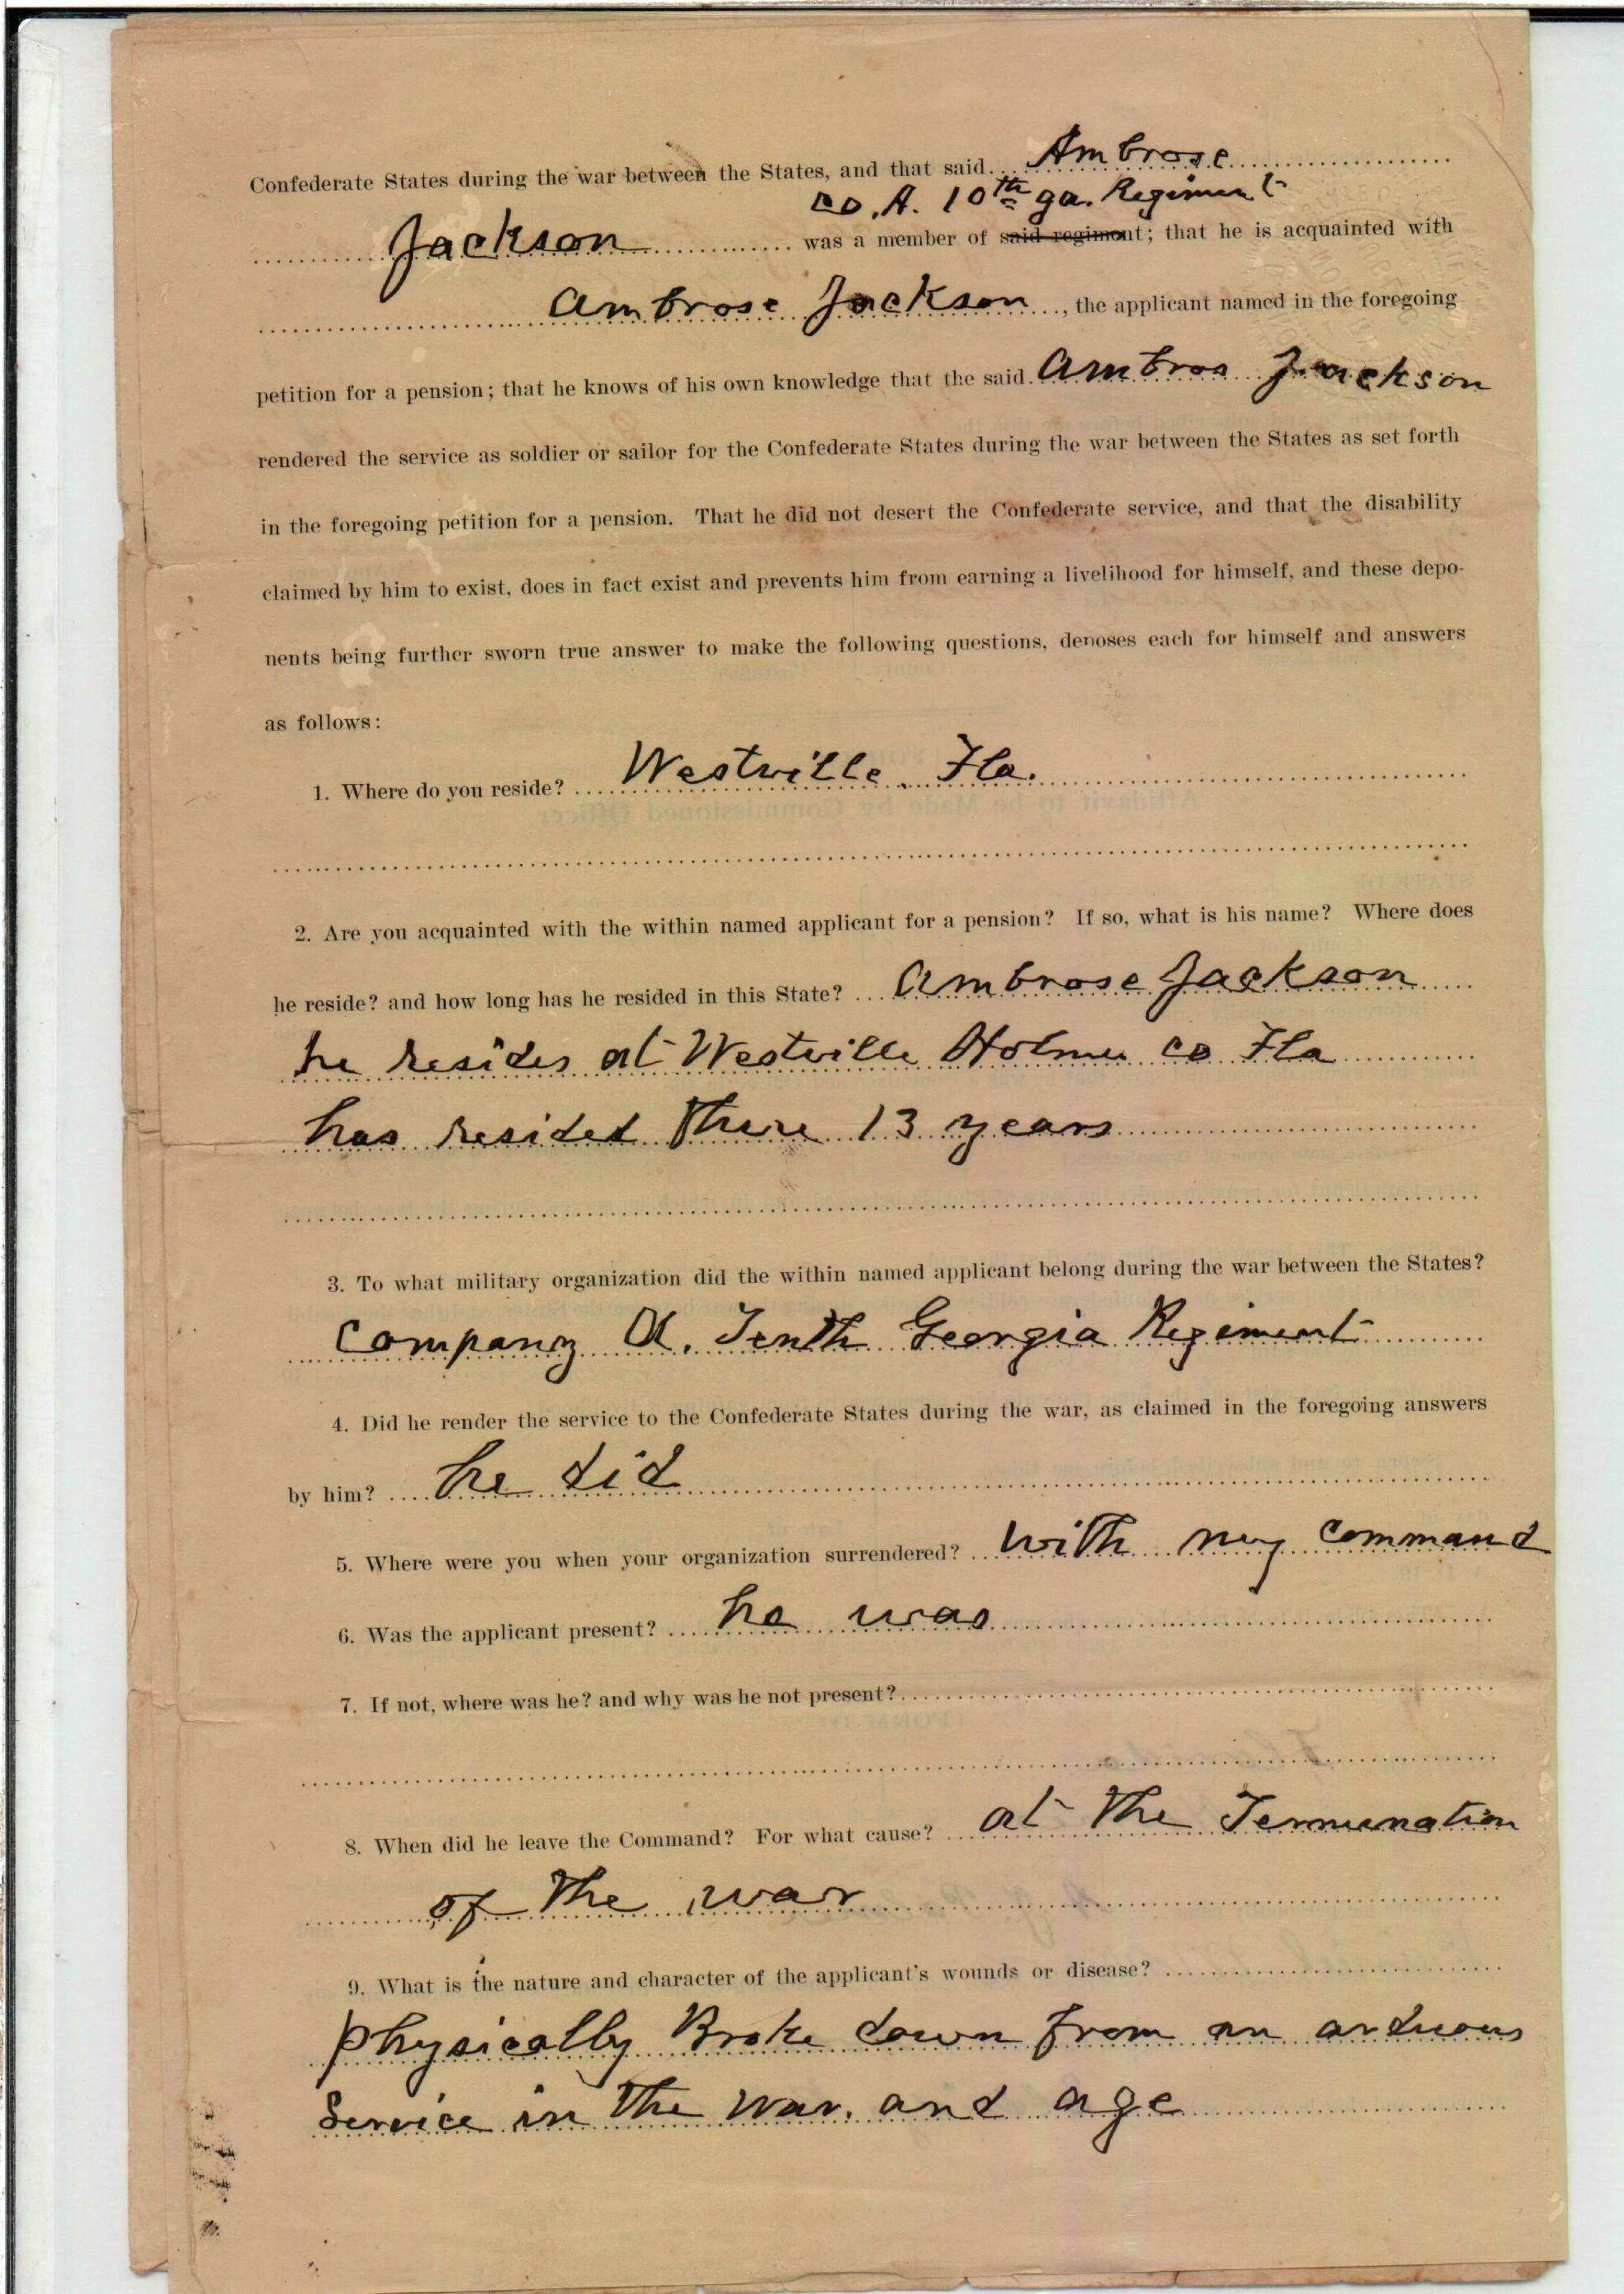 Confederate States during the war between the States, and that said Ambrose
co. A. 10th ga. Regiment
Jackson was a member of said regiment; that he is acquainted with
Ambrose Jackson, the applicant named in the foregoing
petition for a pension; that he knows of his own knowledge that the said Ambros Jackson
rendered the service as soldier or sailor for the Confederate States during the war between the States as set forth
in the foregoing petition for a pension. That he did not desert the Confederate service, and that the disability
claimed by him to exist, does in fact exist and prevents him from earning a livelihood for himself, and these depo-
nents being further sworn true answer to make the following questions, denoses each for himself and answers
as follows:
1. Where do you reside? Westville. Fla.
2. Are you acquainted with the within named applicant for a pension? If so, what is his name? Where does
he reside? and how long has he resided in this State? Ambrose Jackson
he resides at Westville Holmes co Fla
has resided there 13 years
3. To what military organization did the within named applicant belong during the war between the States?
Company A. Tenth Georgia Regiment
4. Did he render the service to the Confederate States during the war, as claimed in the foregoing answers
by him? he did
5. Where were you when your organization surrendered? with my command
6. Was the applicant present? he was
7. If not, where was he? and why was he not present?
8. When did he leave the Command? For what cause? at the Termination
of the war
9. What is the nature and character of the applicant's wounds or disease?
Physically Broke down from an arduous
Service in the war. and age